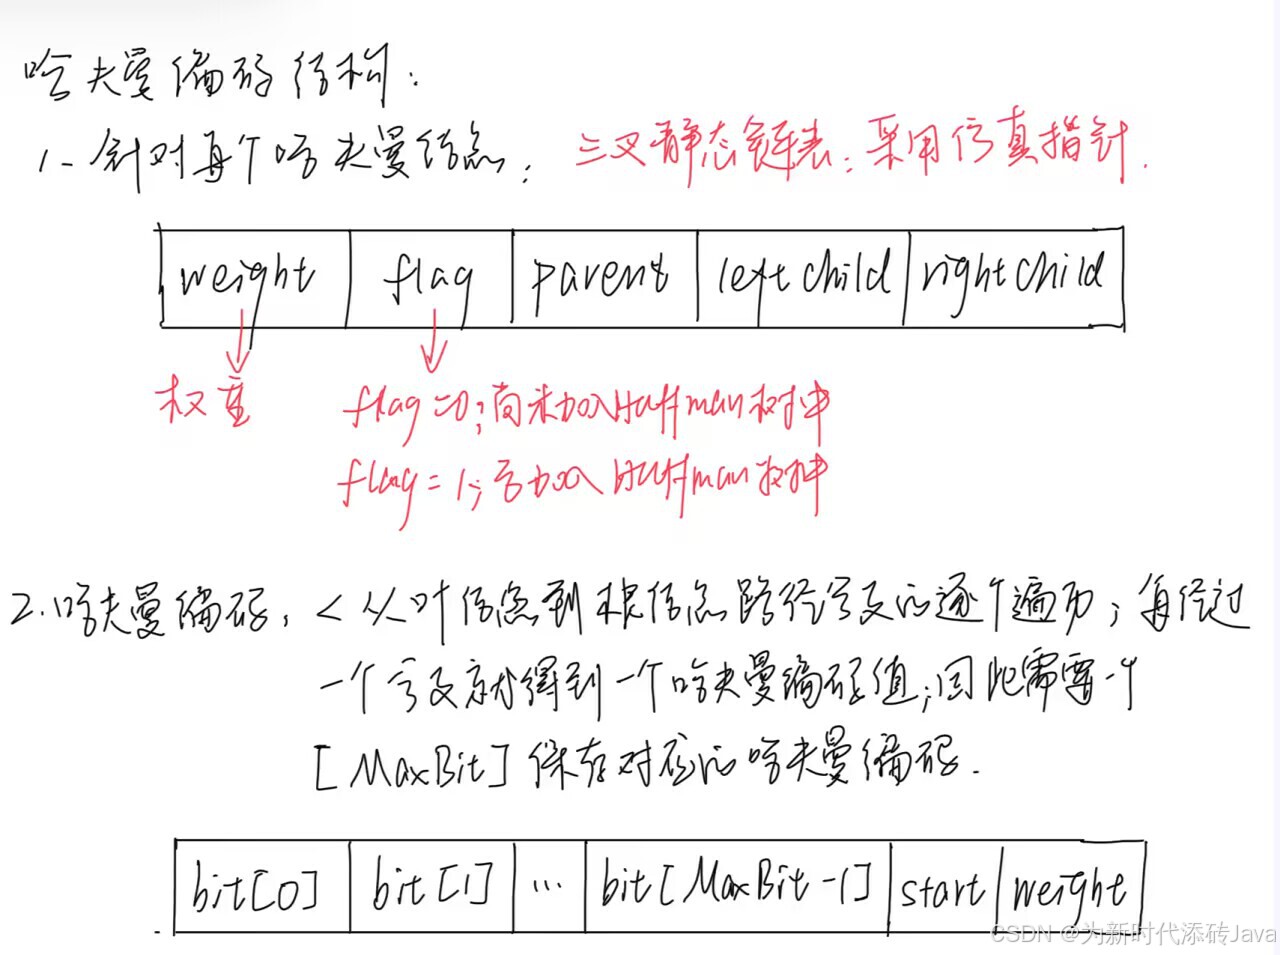 哈夫曼编码结构:
1- 针对每个哈夫曼结点: 三叉静态链表:采用仿真指针.
weight flag parent leftchild rightchild
权重 flag=0;尚未加入Huffman树中
flag=1;已加入Huffman树中
2.哈夫曼编码:<从叶结点到根结点路径分支的逐个遍历;每经过
一个分支就得到一个哈夫曼编码值;因此需要一个
[MaxBit]保存对应的哈夫曼编码.
bit[0] bit[1] ... bit[MaxBit-1] start weight
CSDN @为新时代添砖Java